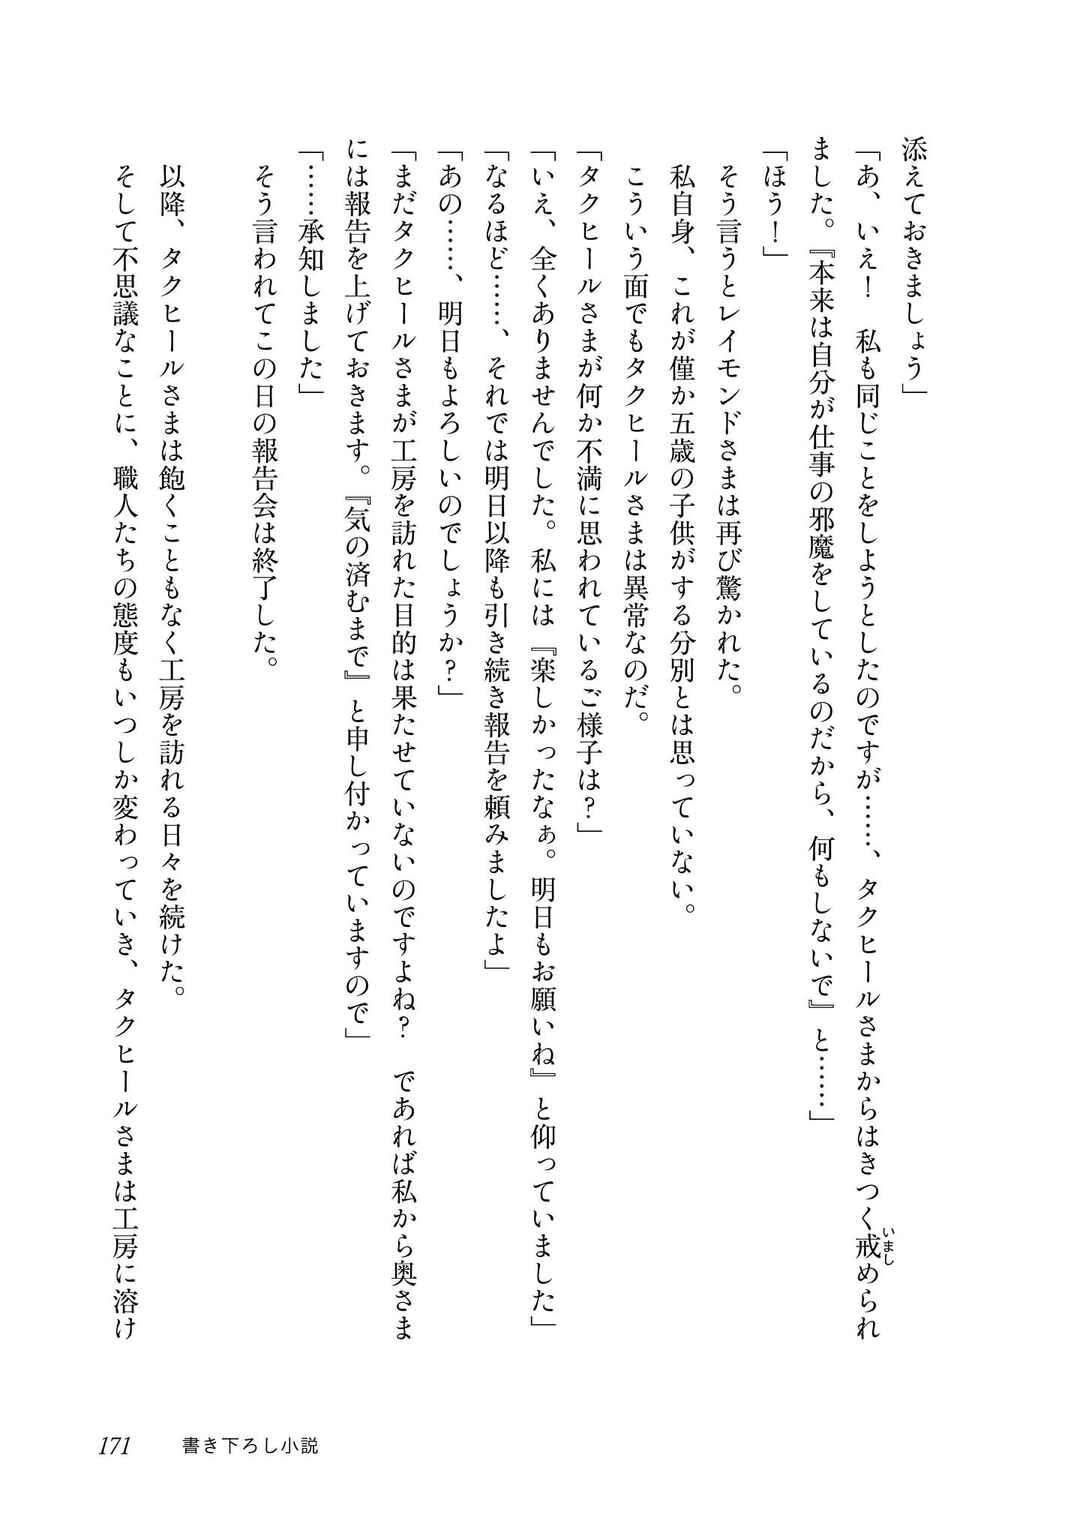 添えておきましょう」
「あ、いえ！　私も同じことをしようとしたのですが……、タクヒールさまからはきつく戒められ
いまし
ました。『本来は自分が仕事の邪魔をしているのだから、何もしないで』と……」
「ほう！」
　そう言うとレイモンドさまは再び驚かれた。
　私自身、これが僅か五歳の子供がする分別とは思っていない。
　こういう面でもタクヒールさまは異常なのだ。
「タクヒールさまが何か不満に思われているご様子は？」
「いえ、全くありませんでした。私には『楽しかったなぁ。明日もお願いね』と仰っていました」
「なるほど……、それでは明日以降も引き続き報告を頼みましたよ」
「あの……、明日もよろしいのでしょうか？」
「まだタクヒールさまが工房を訪れた目的は果たせていないのですよね？　であれば私から奥さま
には報告を上げておきます。『気の済むまで』と申し付かっていますので」
「……承知しました」
　そう言われてこの日の報告会は終了した。
　以降、タクヒールさまは飽くこともなく工房を訪れる日々を続けた。
　そして不思議なことに、職人たちの態度もいつしか変わっていき、タクヒールさまは工房に溶け
171　書き下ろし小説